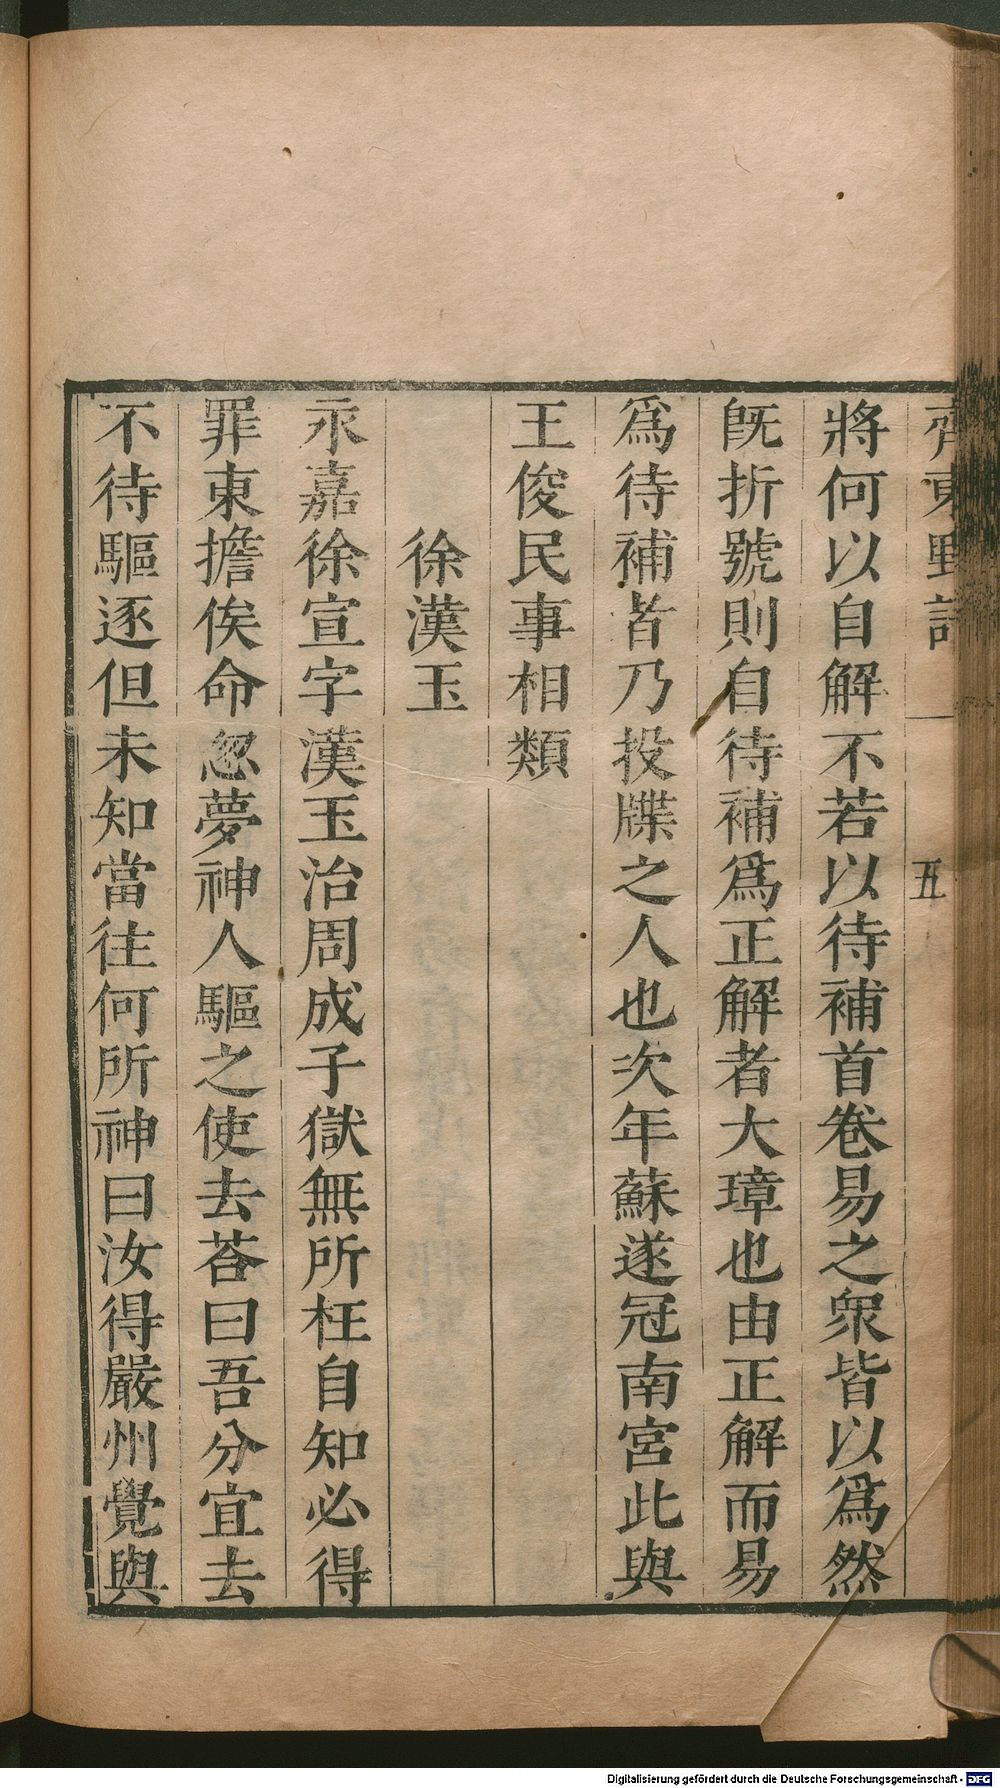 齊東野語 五
將何以自解不若以待補首卷易之衆皆以爲然
旣折號則自待補爲正解者大璋也由正解而易
爲待補者乃投牒之人也次年蘇遂冠南宮此與
王俊民事相類
徐漢玉
永嘉徐宣字漢玉治周成子獄無所枉自知必得
罪東擔俟命忽夢神人驅之使去荅曰吾分宜去
不待驅逐但未知當往何所神曰汝得嚴州覺與
Digitalisierung gefördert durch die Deutsche Forschungsgemeinschaft - DFG